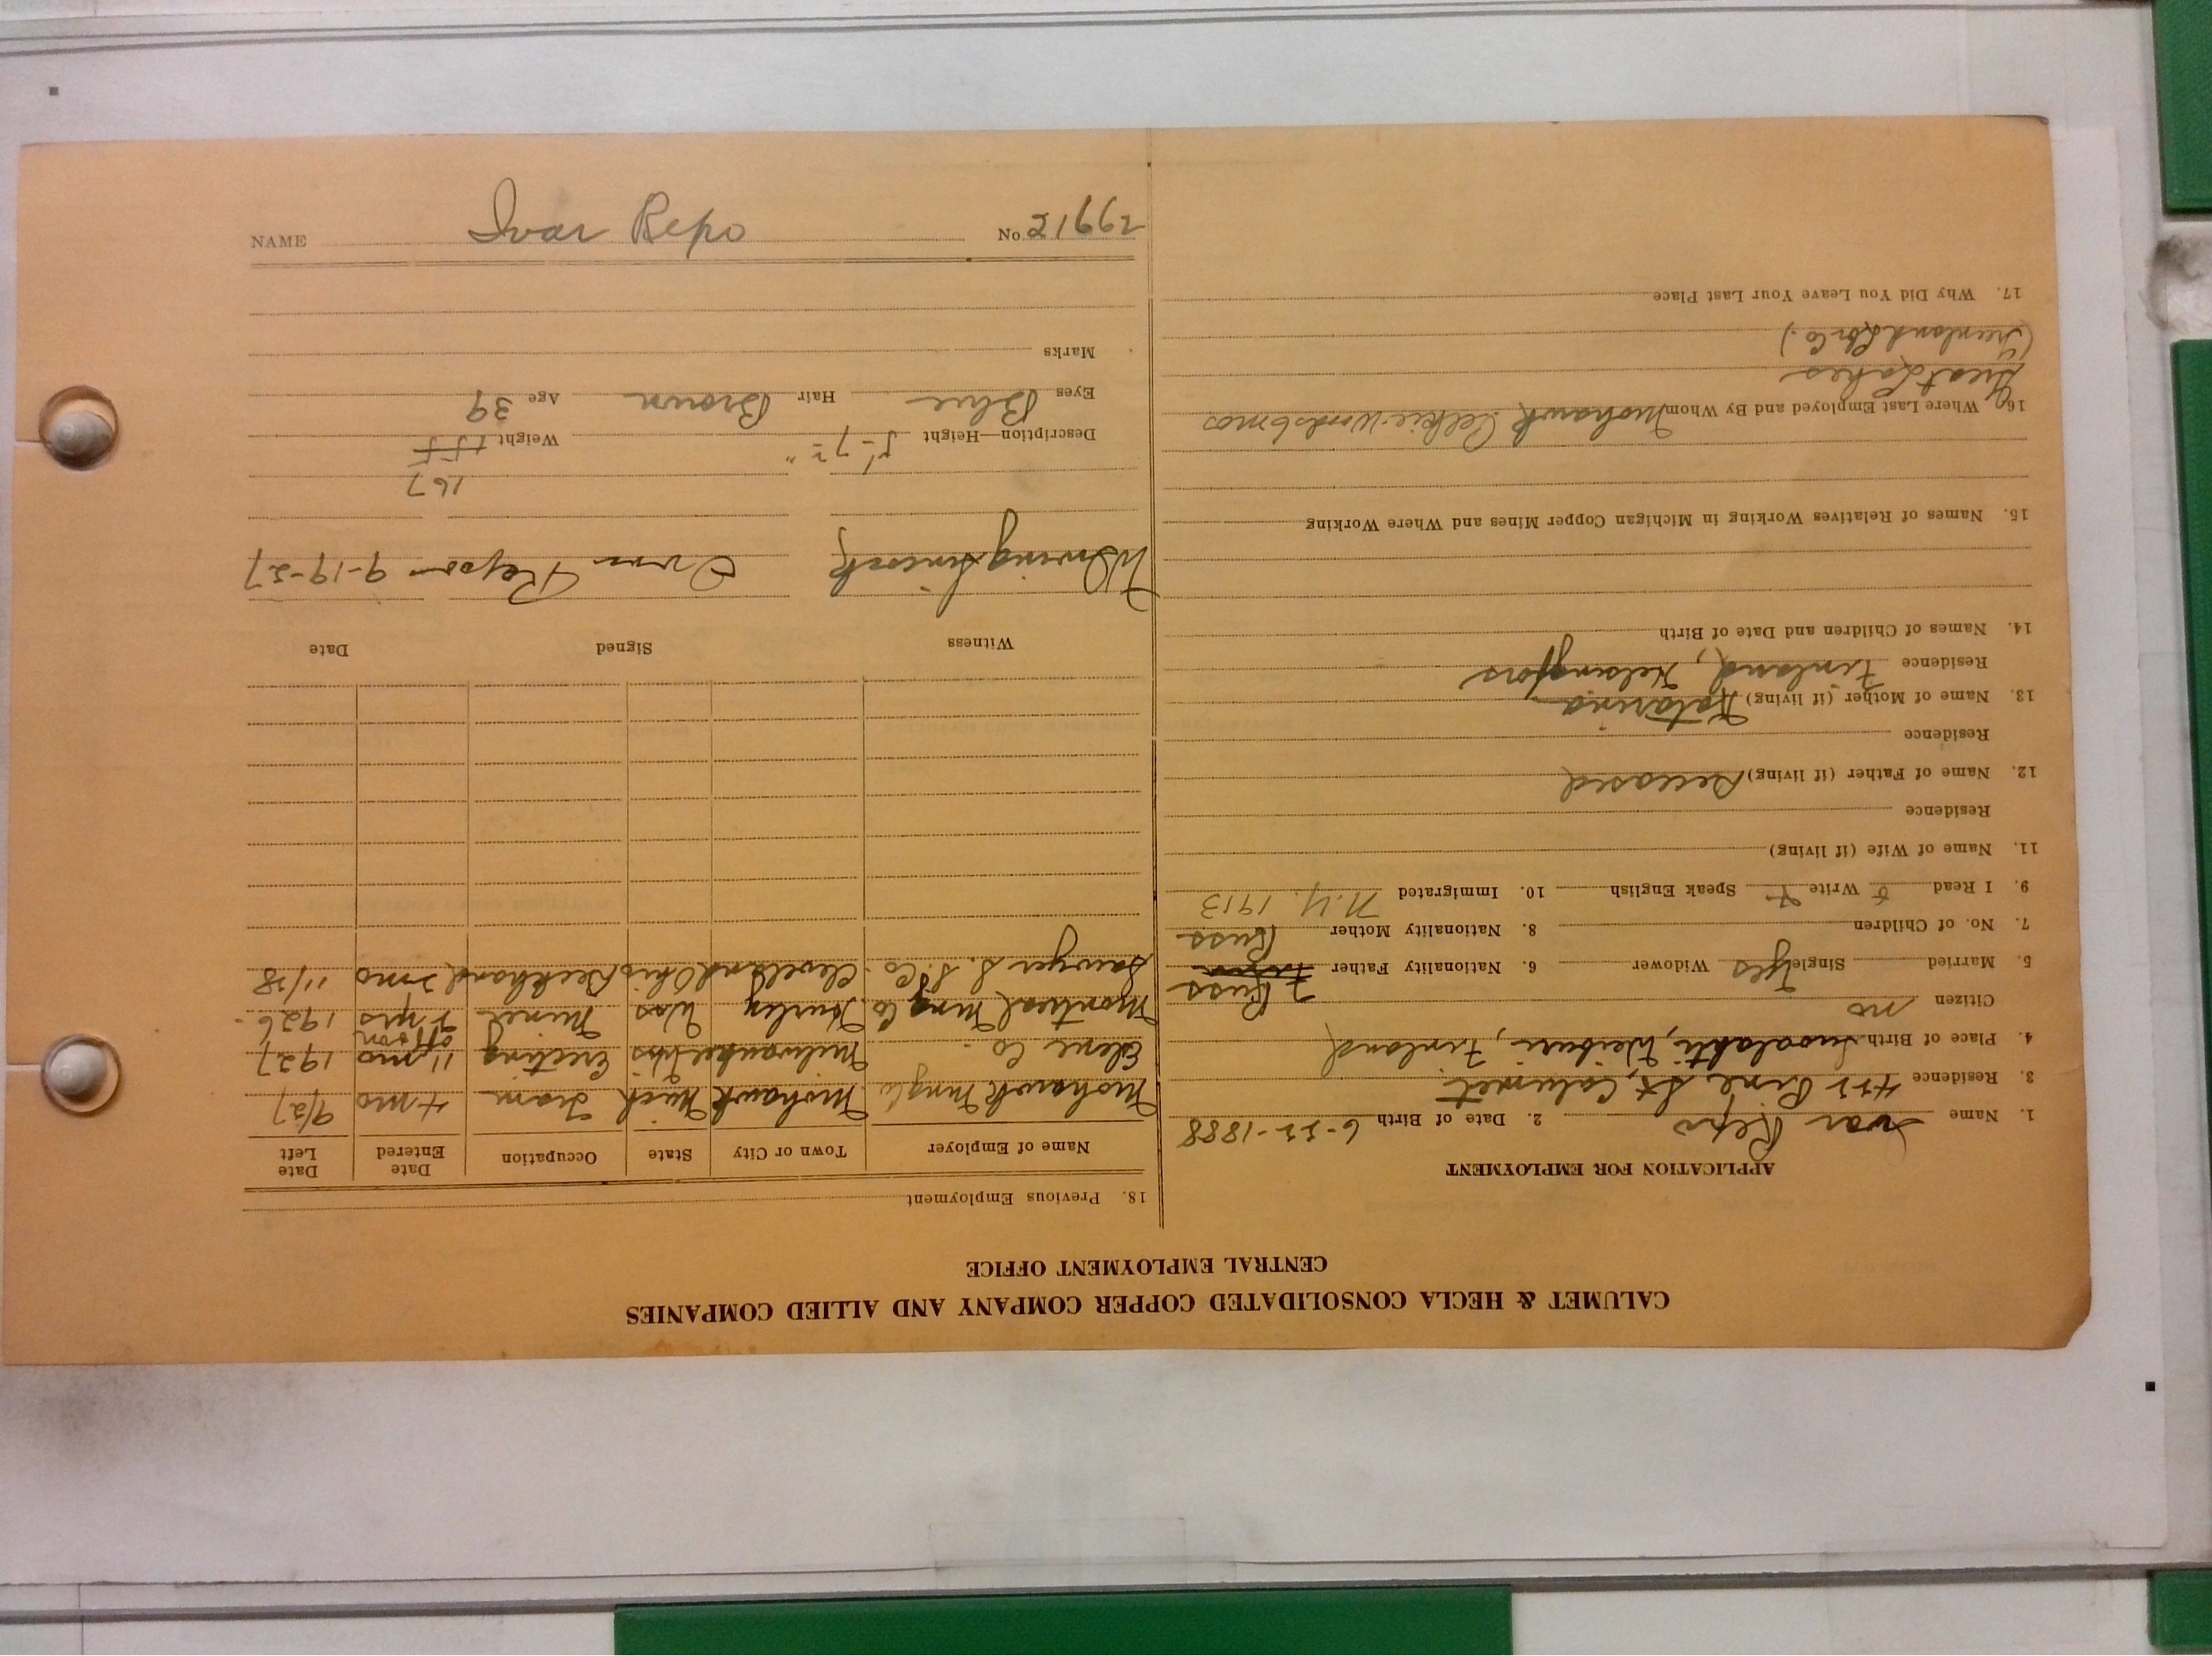 CALUMET & HECLA CONSOLIDATED COPPER COMPANY AND ALLIED COMPANIES
CENTRAL EMPLOYMENT OFFICE
APPLICATION FOR EMPLOYMENT
1. Name Ivar Repo 2. Date of Birth 6-22-1888
3. Residence 422 Pine St, Calumet
4. Place of Birth Finland
Citizen no
5. Married Single yes Widower 6. Nationality Father Russ
7. No. of Children 8. Nationality Mother Russ
9. I Read Write Speak English 10. Immigrated N.Y. 1913
11. Name of Wife (if living)
Residence
12. Name of Father (if living) Deceased
Residence
13. Name of Mother (if living) Katarina
Residence Finland, Helsingfors
14. Names of Children and Date of Birth
15. Names of Relatives Working in Michigan Copper Mines and Where Working
16. Where Last Employed and By Whom Mohawk Pelkie-Woods 6 mos
Great Lakes
17. Why Did You Leave Your Last Place
18. Previous Employment
Name of Employer Town or City State Occupation Date Entered Date Left
Mohawk Mng Co Mohawk Mich Tram 4 mo 9/27
Co. Milwaukee Wis Erecting 11 mo 1927
Montreal Mng Co. Hurley Wis Miner off & on 1926.
Sawyer S. S. Co. Cleveland Ohio Deckhand 2 mo 11/28
Witness Signed Date
W Irving Sincock Ivar Repo 9-19-27
167
Description—Height 5'-7½" Weight 155
Eyes Blue Hair Brown Age 39
Marks
NAME Ivar Repo No. 21992